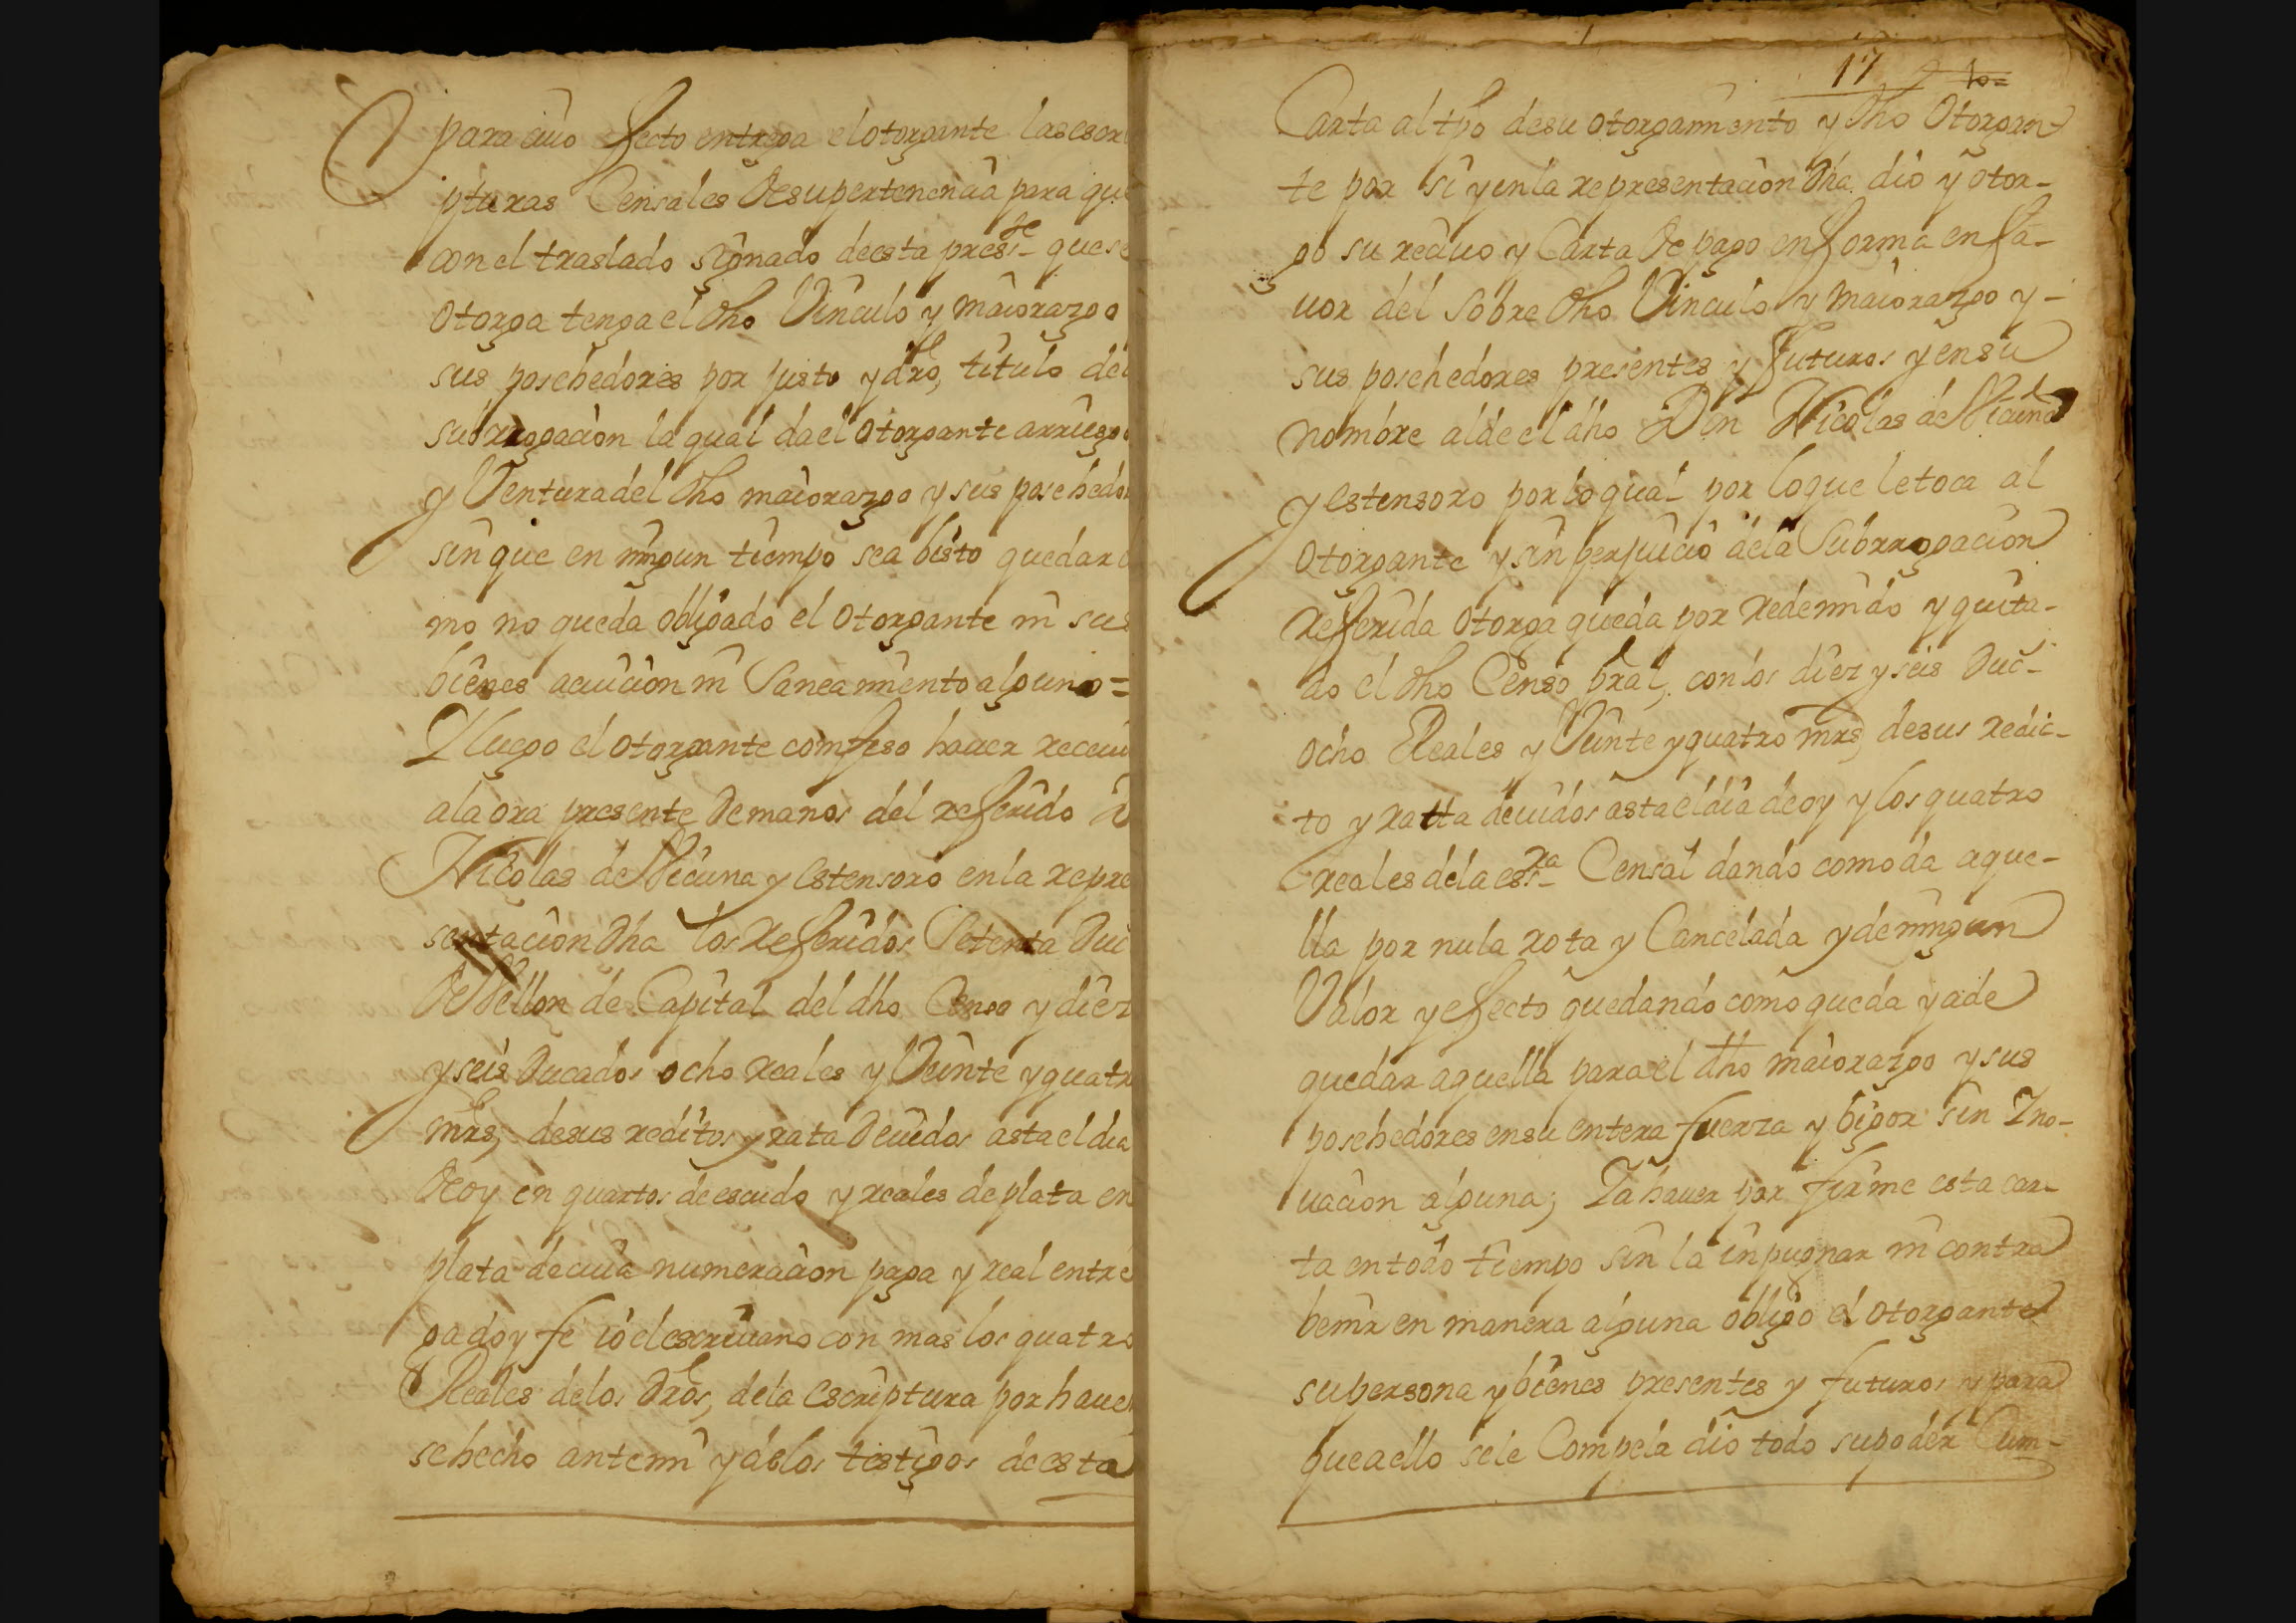 para cuio efecto entrega el otorgante las escri
pturas Censales de su pertenencia para que
con el traslado signado de esta press.te que se
otorga tenga el dho Vinculo y maiorazgo
sus posehedores por justo y dro, titulo de
subrrogacion la qual da el otorgante arriesgo
y Ventura del dho maiorazgo y sus posehedo
sin que en ningun tiempo sea bisto quedar
mo no queda obligado el otorgante ni sus
bienes a euicion ni Saneamiento alguno =
Y luego el otorgante confeso hauer receui
ala ora presente de manos del referido D
Nicolas de Vicuna y estensoro en la repre
sentacion dha los referidos Setenta Duc
de Vellon de Capital del dho Censo y diez
y seis Ducados ocho reales y Veinte y quatr
mrs, de sus reditos y rata deuidos asta el dia
de oy en quartos de escudo y reales de plata en
plata de cuia numeracion paga y real entre
ga doy fe io el escriuano con mas los quatro
Reales de los dros, de la escriptura por hauer
se hecho ante mi y de los testigos de esta
17 10=
Carta al tpo de su otorgamiento y dho Otorgan
te por si y en la representacion dha dio y otor-
go su reciuo y Carta de pago en forma en fa-
uor del sobre dho Vinculo y maiorazgo y -
sus posehedores presentes y futuros y en su
nombre al de el dho Don Nicolas de Vicuna
y estensoro por lo qual por lo que le toca al
otorgante y sin perjuicio de la Subrrogacion
referida otorga queda por redemido y quita-
do el dho Censo pral, con los diez y seis Duc-
ocho Reales y Veinte y quatro mrs, de sus redic-
to y ratta deuidos asta el dia de oy y los quatro
reales de la ess.ra Censal dando como da aque-
lla por nula rota y Cancelada y de ningun
Valor y efecto quedando como queda y a de
quedar aquella para el dho maiorazgo y sus
posehedores en su entera fuerza y bigor sin Yno-
uacion alguna; Y a hauer por firme esta car-
ta en todo tiempo sin la inpugnar ni contra
benir en manera alguna obligo el otorgante
su persona y bienes presentes y futuros y para
que a ello se le Compela dio todo su poder Cum-